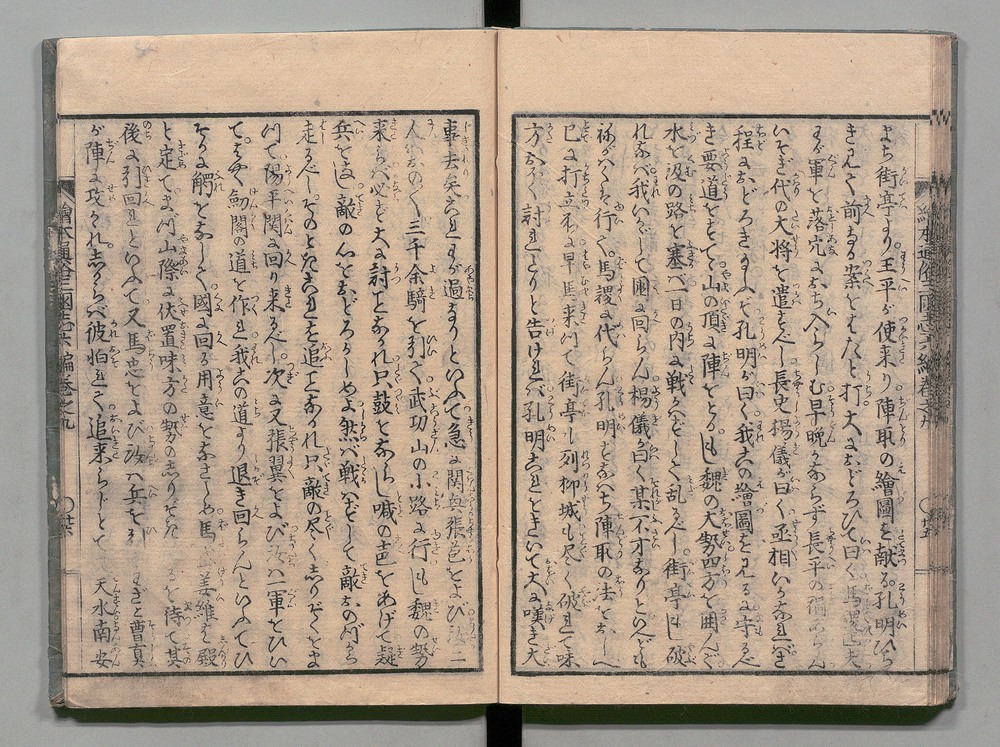 まち街亭より王平が使来り陣取の繪圖を献る孔明ひら
きみて前なる案をはたと打大におどろひて曰く馬謖匹夫
わが軍を落穴におち入らしむ早晩かならず長平の禍あらん
いそぎ代の大将を遣すべし長史楊儀が曰く丞相いかなればさ
程におどろきたまふぞ孔明が曰く我この繪圖を見るに守るべ
き要道をすてて山の頂に陣をとる魏の大勢四方を囲んで
水を汲の路を塞ば一日の内に戦はずして乱るべし街亭もし破
れなば我いかにして囲に回らん楊儀曰く某不才なりといへども
ねがはくは行て馬謖に代らん孔明すなはち陣取の法をおしへ
已に打立ねに早馬来つて街亭も列柳城も尽く破れて味
方おほく討れたりと告ければ孔明これをきいて大に嘆き天
事去矣これわが過なりといふて急に関興張苞をよび汝二
人おのおの三千余騎を引て武功山の小路に行もし魏の勢
来らば必ず大に討ことなかれ只鼓をならし喊の声をあげて疑
兵をなし敵の心をおどろかしめよ然ば戦はずして敵おのづから
走るべしそのときこれを追ことなかれ只敵の尽くしりぞくをま
つて陽平関に回り来るべし次に又張翼をよび汝は一軍をひい
てはやく劔閣の道を作れ我この道より退き回らんといふてひ
そかに觸をなして國に回る用意をなさしめ馬 姜維を殿
と定てまづ山際に伏置味方の勢のしりぞ るを待て其
後に引回れといふて又馬忠をよび汝は兵を引 曹真
が陣に攻かかれしからば彼怕れて追来らじとて 天水南安
繪本通俗三國志六編巻之九
〇廿五
繪本通俗三國志六編巻之九
〇廿六